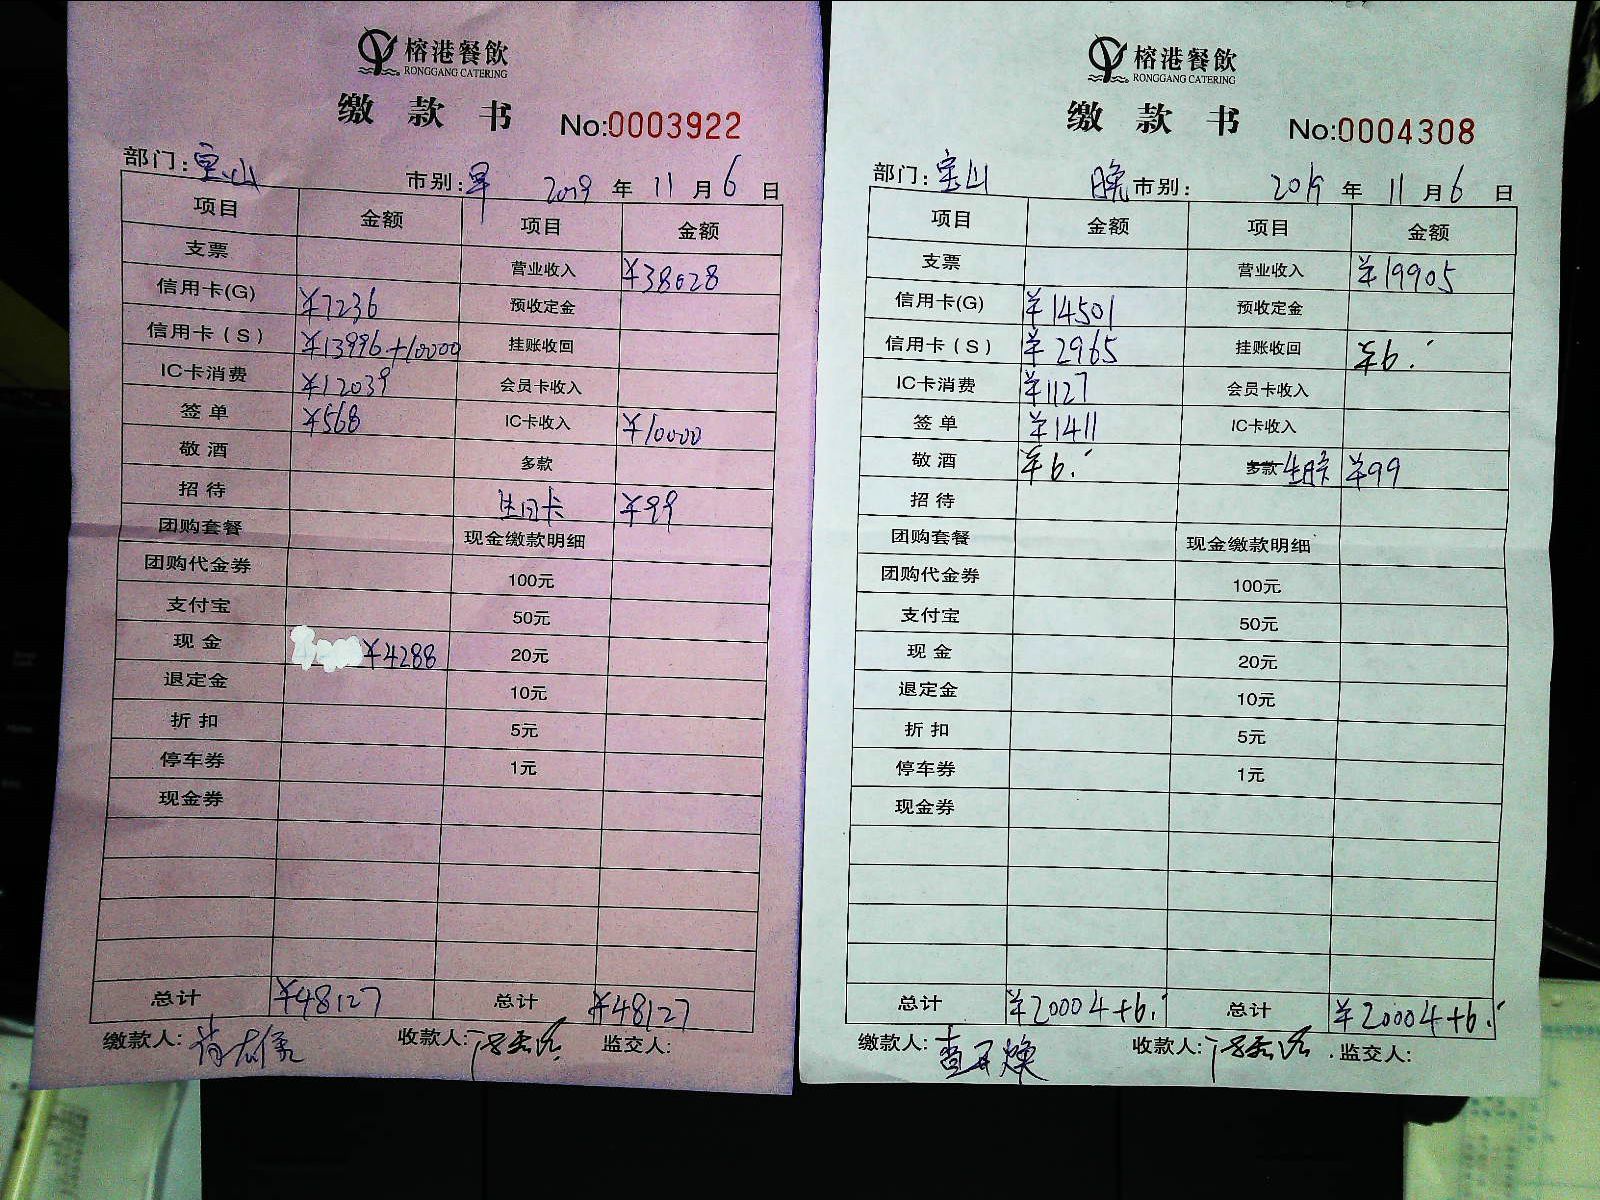 榕港餐飲
RONGGANG CATERING
缴款书 No:0003922
部门:宝山 市别:早 2019年11月6日
项目 金额 项目 金额
支票 营业收入 ¥38028
信用卡(G) ¥7236 预收定金
信用卡(S) ¥13996+10000 挂账收回
IC卡消费 ¥12039 会员卡收入
签单 ¥568 IC卡收入 ¥10000
敬酒 多款
招待 生日卡 ¥99
团购套餐 现金缴款明细
团购代金券 100元
支付宝 50元
现金 ¥4288 20元
退定金 10元
折扣 5元
停车券 1元
现金券
总计 ¥48127 总计 ¥48127
缴款人: 收款人: 监交人:
榕港餐飲
RONGGANG CATERING
缴款书 No:0004308
部门:宝山 晚市别: 2019年11月6日
项目 金额 项目 金额
支票 营业收入 ¥19905
信用卡(G) ¥14501 预收定金
信用卡(S) ¥2965 挂账收回 ¥6.
IC卡消费 ¥1127 会员卡收入
签单 ¥1411 IC卡收入
敬酒 ¥6. 多款 ¥99
招待
团购套餐 现金缴款明细
团购代金券 100元
支付宝 50元
现金 20元
退定金 10元
折扣 5元
停车券 1元
现金券
总计 ¥20004+6. 总计 ¥20004+6.
缴款人: 收款人: 监交人: